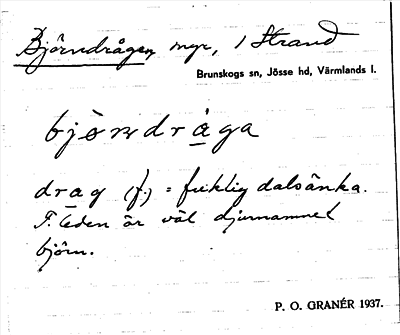 Björndrågen, myr, 1 Strand
Brunskogs sn, Jösse hd, Värmlands l.
björndråga
drag (f.) = fuktig dalsänka.
F. leden är väl djurnamnet
björn.
P. O. GRANÉR 1937.